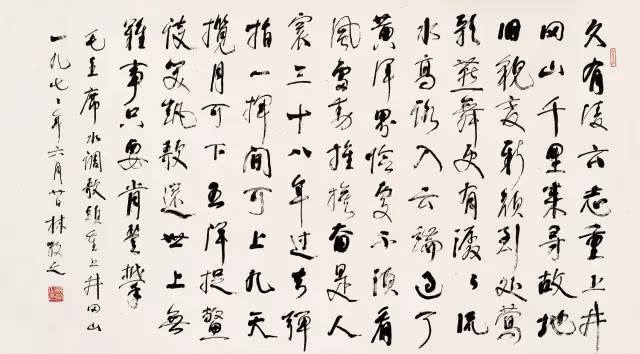 久有凌云志重上井
冈山千里来尋故地
旧貌变新颜到处莺
歌燕舞更有潺々流
水高路入云端过了
黄洋界险處不須看
風雷動旌旗奋是人
寰三十八年过去彈
指一揮间可上九天
揽月可下五洋捉鳖
谈笑凯歌还世上無
難事只要肯登攀
毛主席水调歌头重上井冈山
一九七々年六月廿日林散之